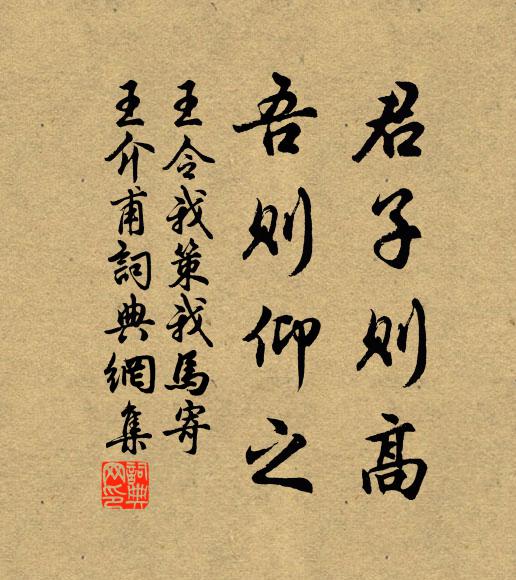 君子則高
吾則仰之
王令我策我馬寄
王介甫詞典網集
詞典網印